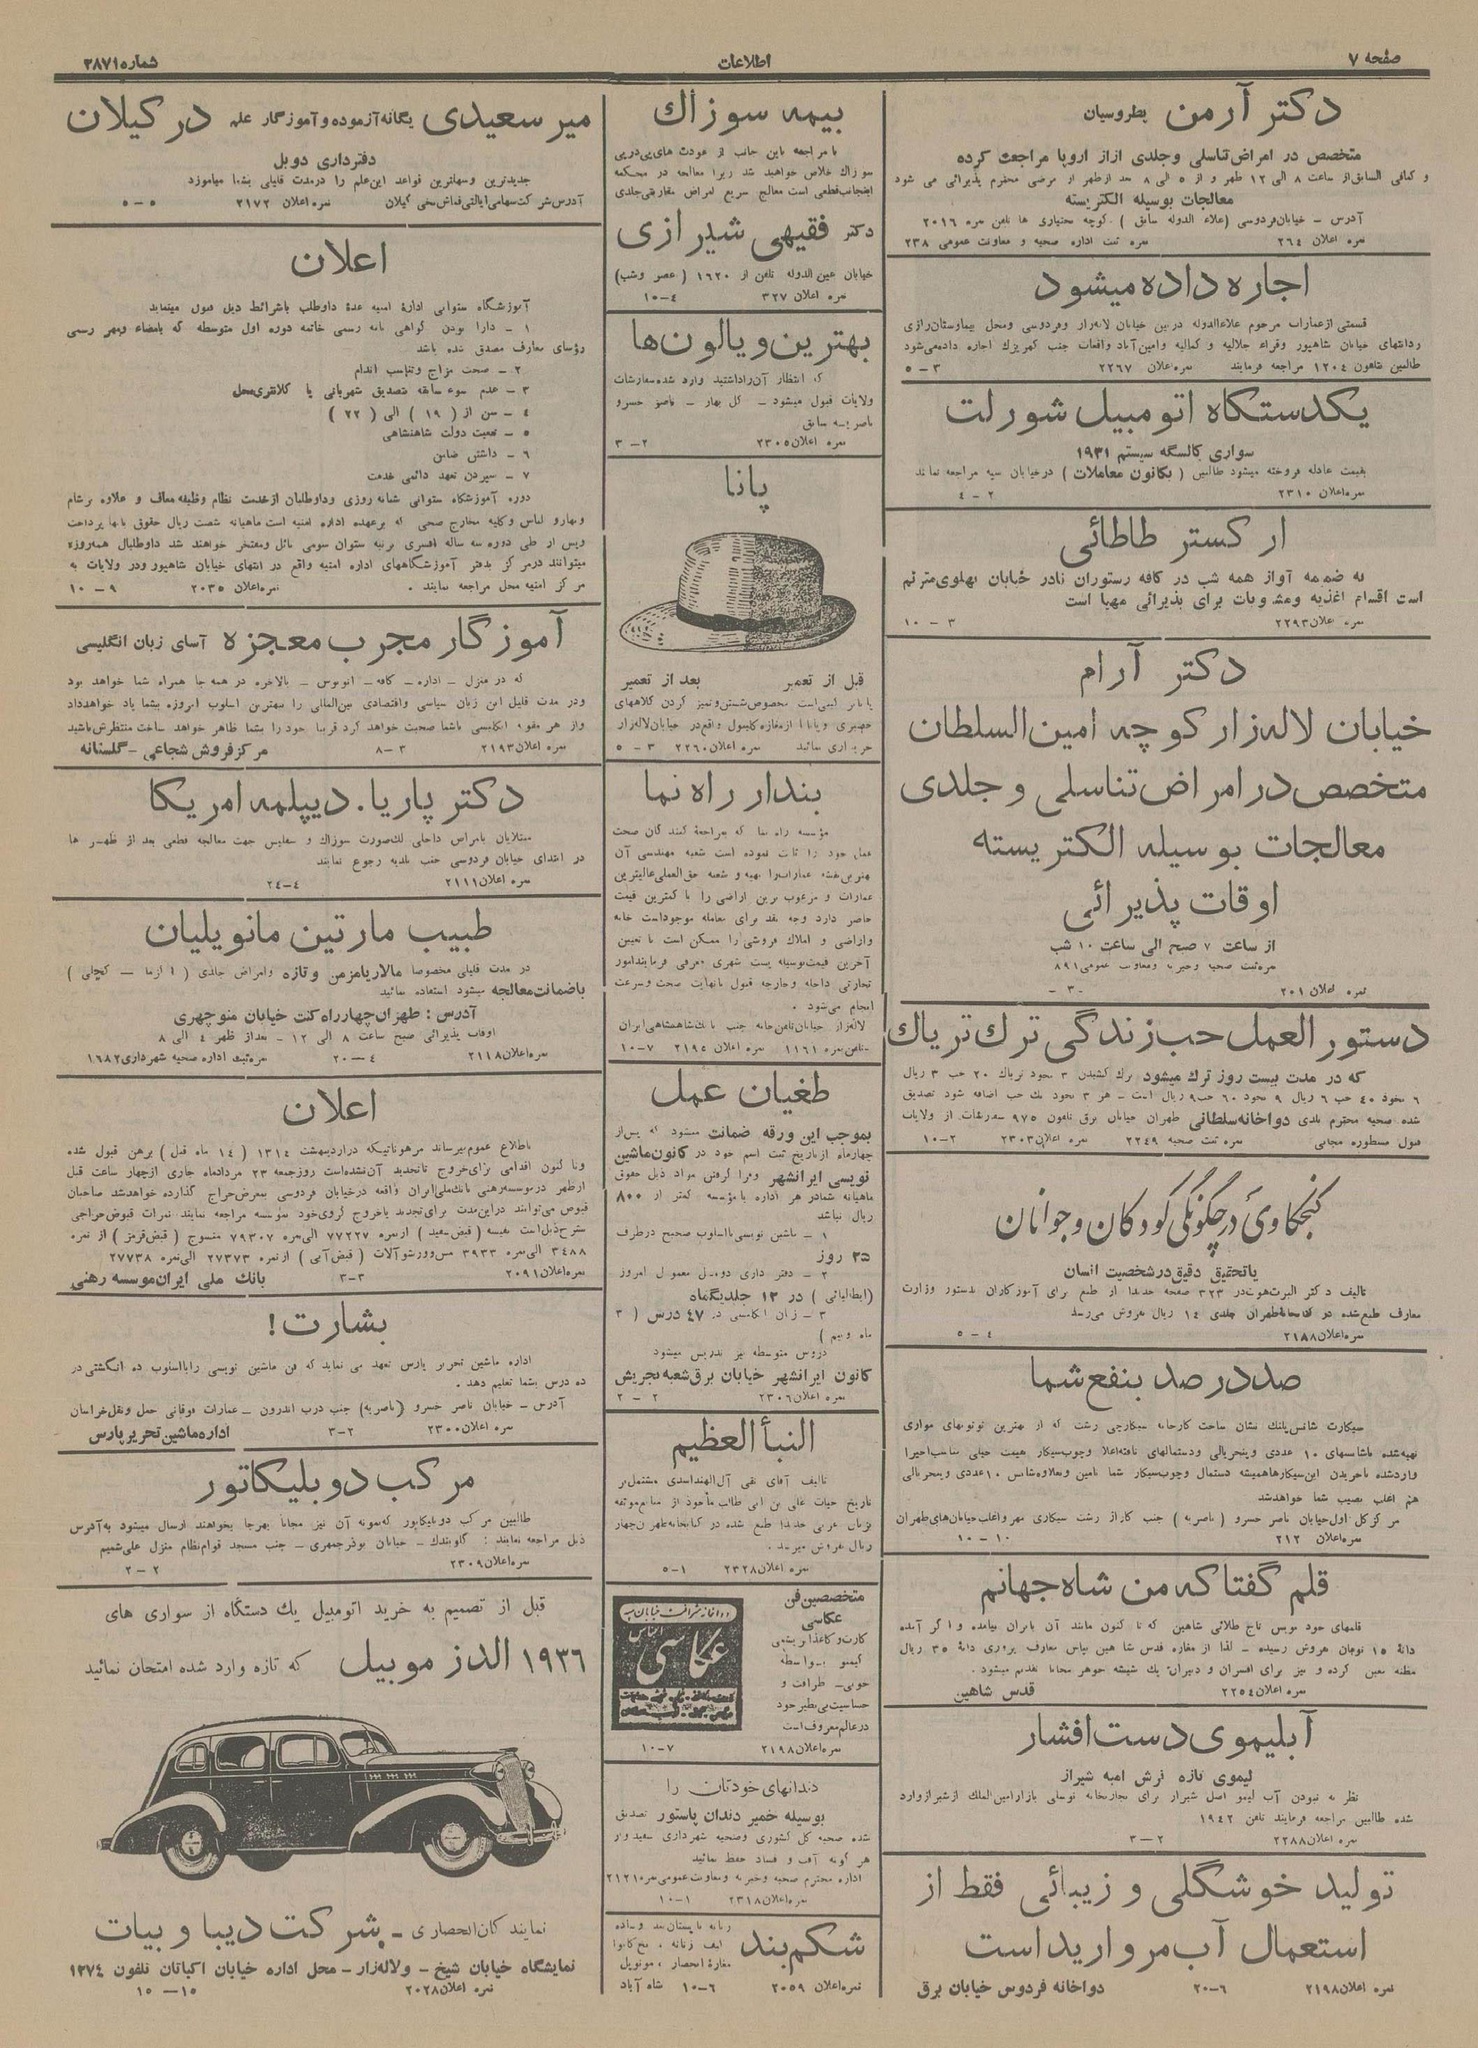 صفحه ۷
اطلاعات
شماره ۳۸۷۱
دکتر آرمن پطروسیان
متخصص در امراض تناسلی و جلدی ازاز اروپا مراجعت کرده
و کمافی السابق از ساعت ۸ الی ۱۲ ظهر و از ۵ الی ۸ بعد ازظهر از مرضی محترم پذیرائی می شود
معالجات بوسیله الکتریسته
آدرس – خیابان فردوسی (علاء الدوله سابق) کوچه بختیاری ها تلفن نمره ۲۰۱۶
نمره اعلان ۲۶۴ نمره ثبت اداره صحیه و معاونت عمومی ۲۳۸
اجاره داده میشود
قسمتی ازعمارات مرحوم علاءالدوله در بین خیابان لاله‌زار وفردوسی ومحل بیمارستان رازی
در انتهای خیابان شاهپور وقراء جلالیه و کمالیه وامین آباد واقعات جنب کهریزك اجاره داده می‌شود
طالبین بتلفون ۱۲۰۴ مراجعه فرمایند نمره‌علان ۲۲۶۷ ۳ – ۵
یکدستگاه اتومبیل شورلت
سواری کالسگه سیستم ۱۹۳۱
بقیمت عادله فروخته میشود طالبین (بکانون معاملات) در خیابان سپه مراجعه نمایند
نمره اعلان ۲۳۱۰ ۲ – ۴
ارکستر طاطائی
به ضمیمه آواز همه شب در کافه رستوران نادر خیابان پهلوی مترنم
است اقسام اغذیه ومشروبات برای پذیرائی مهیا است
نمره اعلان ۲۲۹۳ ۳ – ۱۰
دکتر آرام
خیابان لاله زار کوچه امین السلطان
متخصص در امراض تناسلی و جلدی
معالجات بوسیله الکتریسته
اوقات پذیرائی
از ساعت ۷ صبح الی ساعت ۱۰ شب
نمره ثبت صحیه و خیریه ومعاونت عمومی ۸۹۱
نمره اعلان ۲۰۱
دستور العمل حب زندگی ترك تریاك
که در مدت بیست روز ترك میشود ترك کشیدن ۳ نخود تریاك ۲۰ حب ۳ ریال
۶ نخود ۴۰ حب ۶ ریال ۹ نخود ۶۰ حب ۹ ریال است – هر ۳ نخود یك حب اضافه شود تصدیق
شده صحیه محترم بلدی دواخانه سلطانی طهران خیابان برق تلفون ۹۷۵ سفارشات از ولایات
قبول مسطوره مجانی نمره ثبت صحیه ۲۲۴۹ نمره اعلان ۲۳۰۳ ۲–۱۰
کنجکاوی در چگونگی کودکان و جوانان
یا تحقیق دقیق در شخصیت انسان
تالیف دکتر البرت هوت در ۳۲۳ صفحه جدیدا از طبع برای آموزگاران بدستور وزارت
معارف طبع شده در کتابخانه طهران جلدی ۱۴ ریال بفروش می‌رسد
نمره اعلان ۲۱۸۸ ۴ – ۵
صد در صد بنفع شما
هم اغلب نصیب شما خواهد شد
مرکز کل اول خیابان ناصر خسرو (ناصریه) جنب گاراژ رشت سیگاری مهر واغلب خیابان های طهران
نمره اعلان ۲۱۲ ۱۰ – ۱۰
قلم گفتا که من شاه جهانم
قلمهای خود نویس تاج طلائی شاهین که تا کنون مانند آن بایران نیامده و اگر آمده
دانهٔ ۱۵ تومان بفروش رسیده – لذا از مغازه قدس شاهین بپاس معارف پروری دانهٔ ۳۵ ریال
مظنه معین کرده و نیز برای افسران و دبیران یك شیشه جوهر مجانا تقدیم میشود.
نمره اعلان ۲۲۵۴ قدس شاهین
آبلیموی دست افشار
لیموی تازه ترش امبه شیراز
نظر به نبودن آب لیمو اصل شیراز برای تجارتخانه توسلی بازار امین الملك از شیراز وارد
شده طالبین مراجعه فرمایند تلفن ۱۹۴۲
نمره اعلان ۲۲۸۸ ۲–۳
تولید خوشگلی و زیبائی فقط از
استعمال آب مرواریداست
نمره اعلان ۲۱۹۸ ۶–۲۰ دواخانه فردوس خیابان برق
بیمه سوزاك
با مراجعه باین جانب از عودت های پی در پی
سوزاك خلاص خواهید شد زیرا معالجه در محکمه
اینجانب قطعی است معالج سریع امراض مقاربتی جلدی
دکتر فقیهی شیرازی
خیابان عین الدوله تلفن از ۱۶۲۰ (عصر وشب)
نمره اعلان ۳۲۷ ۴–۱۰
بهترین ویالون‌ها
که انتظار آن را داشتید وارد شده سفارشات
ولایات قبول میشود – گل بهار – ناصر خسرو
ناصریه سابق
نمره اعلان ۲۳۰۵ ۲–۳
پانا
قبل از تعمیر بعد از تعمیر
نمره اعلان ۲۲۶۰ ۳ – ۵
بندار راه نما
مؤسسه راه نما که بمراجعه کنندگان صحت
عمل خود را ثابت نموده است شعبه مهندسی آن
بهترین نقشه عمارات را تهیه و شعبه حق العملی عالیترین
عمارات و مرغوب ترین اراضی را با کمترین قیمت
حاضر دارد وجه نقد برای معامله موجود است خانه
واراضی و املاك فروشی را ممکن است با تعیین
آخرین قیمت بوسیله پست شهری معرفی فرمایند امور
تجارتی داخله وخارجه قبول با نهایت صحت و سرعت
انجام می‌شود .
لاله‌زار خیابان تلفن خانه جنب بانك شاهنشاهی ایران
تلفن نمره ۱۱۶۱ نمره اعلان ۲۱۹۵ ۷–۱۰
طغیان عمل
بموجب این ورقه ضمانت میشود که پس از
چهارماه از تاریخ ثبت اسم خود در کانون ماشین
نویسی ایرانشهر وفرا گرفتن مواد ذیل حقوق
ماهیانه شمادر هر اداره یا مؤسسه کمتر از ۸۰۰
ریال نباشد
۱ – ماشین نویسی با اسلوب صحیح در ظرف
۲۵ روز
۲ – دفتر داری دوبل معمول امروز
(ایطالیائی) در ۱۲ جلدیگماه
۳ – زبان انگلیسی در ۴۷ درس (۳
ماه ونیم)
دروس متوسطه نیز تدریس میشود
کانون ایرانشهر خیابان برق شعبه تجریش
نمره اعلان ۲۳۰۶ ۲ – ۲
النبأ العظیم
تاریخ حیات علی بن ابی طالب مأخوذ از منابع موثقه
بزبان عربی جدیدا طبع شده در کتابخانه طهران چهار
ریال بفروش میرسد.
نمره اعلان ۲۳۲۸ ۱–۵
متخصصین فن
عکاسی
عکاسی الماس
در عالم معروف است
نمره اعلان ۲۱۹۸ ۷–۱۰
دندانهای خودتان را
بوسیله خمیر دندان پاستور تصدیق
شده صحیه کل کشوری وصحیه شهرداری سفید و از
هر گونه آفت و فساد حفظ نمائید
اداره محترم صحیه وخیریه ومعاونت عمومی نمره ۲۱۲۱
نمره اعلان ۲۳۱۸ ۱–۱۰
شکم بند
مغازهٔ انحصار، مونوپل
نمره اعلان ۲۰۵۹ ۶–۱۰ شاه آباد
میر سعیدی یگانه آزموده و آموزگار علم در گیلان
دفترداری دوبل
جدیدترین وسهلترین قواعد این علم را در مدت قلیلی بشما میاموزد
آدرس شرکت سهامی ایالتی قماش نخی گیلان نمره اعلان ۲۱۷۲ ۵ – ۵
اعلان
آموزشگاه ستوانی ادارهٔ امنیه عدهٔ داوطلب باشرائط ذیل قبول مینماید
۱ – دارا بودن گواهی نامه رسمی خاتمه دوره اول متوسطه که بامضاء ومهر رسمی
رؤسای معارف مصدق شده باشد
۲ – صحت مزاج وتناسب اندام
۳ – عدم سوء سابقه بتصدیق شهربانی یا کلانتری محل
۴ – سن از (۱۹) الی (۲۲)
۵ – تبعیت دولت شاهنشاهی
۶ – داشتن ضامن
۷ – سپردن تعهد دائمی خدمت
دوره آموزشگاه ستوانی شبانه روزی وداوطلبان ازخدمت نظام وظیفه معاف و علاوه برشام
ونهارو لباس وکلیه مخارج صحی که برعهده اداره امنیه است ماهیانه شصت ریال حقوق بانها پرداخت
وپس از طی دوره سه ساله افسری برتبه ستوان سومی نائل ومفتخر خواهند شد داوطلبان همه‌روزه
میتوانند درمرکز بدفتر آموزشگاههای اداره امنیه واقع در انتهای خیابان شاهپور ودر ولایات به
مرکز امنیه محل مراجعه نمایند . نمره‌اعلان ۲۰۳۵ ۹ – ۱۰
آموزگار مجرب معجزه آسای زبان انگلیسی
که در منزل – اداره – کافه – اتوبوس – بالاخره در همه جا همراه شما خواهد بود
ودر مدت قلیل این زبان سیاسی واقتصادی بین‌المللی را ببهترین اسلوب امروزه بشما یاد خواهد داد
نمره اعلان ۲۱۹۳ ۳–۸ مرکز فروش شجاعی – گلستانه
دکتر پاریا. دیپلمه امریکا
مبتلایان بامراض داخلی نك صورت سوزاك و سفلیس جهت معالجه قطعی بعد از ظهر ها
در ابتدای خیابان فردوسی جنب بلدیه رجوع نمایند
نمره اعلان ۲۱۱۱ ۴–۲۴
طبیب مارتین مانویلیان
در مدت قلیلی مخصوصا مالاریا مزمن و تازه وامراض جلدی (اگزما – کچلی)
باضمانت معالجه میشود استفاده نمائید
آدرس : طهران چهارراه کنت خیابان منوچهری
اوقات پذیرائی صبح ساعت ۸ الی ۱۲ – بعداز ظهر ۴ الی ۸
نمره‌اعلان ۲۱۱۸ ۴–۲۰ نمره ثبت اداره صحیه شهرداری ۱۶۸۲
اعلان
باطلاع عموم میرساند مرهوناتیکه در اردیبهشت ۱۳۱۴ (۱۴ ماه قبل) برهن قبول شده
وتا کنون اقدامی برای خروج یا تجدید آن نشده است روز جمعه ۲۳ مردادماه جاری از چهار ساعت قبل
ازظهر در موسسه رهنی بانك ملی ایران واقعه در خیابان فردوسی بمعرض حراج گذارده خواهد شد صاحبان
قبوض می‌توانند در این مدت برای تجدید یا خروج گروی خود بموسسه مراجعه نمایند نمرات قبوض حراجی
بشرح ذیل است نفیسه (قبض سفید) از نمره ۷۷۲۲۷ الی نمره ۷۹۳۰۷ منسوج (قبض قرمز) از نمره
۳۴۸۸ الی نمره ۳۹۳۳ مس ورشو آلات (قبض آبی) از نمره ۲۷۳۷۳ الی نمره ۲۷۷۳۸
نمره اعلان ۲۰۹۱ ۳–۳ بانك ملی ایران موسسه رهنی
بشارت!
اداره ماشین تحریر پارس تعهد می نماید که فن ماشین نویسی را با اسلوب ده انگشتی در
ده درس بشما تعلیم دهد .
آدرس – خیابان ناصر خسرو (ناصریه) جنب درب اندرون – عمارات فوقانی حمل ونقل خراسان
نمره اعلان ۲۳۰۰ ۲–۳ اداره ماشین تحریر پارس
مرکب دوبلیکاتور
طالبین مرکب دوبلیکاتور که نمونه آن نیز مجانا بهرجا بخواهند ارسال میشود به آدرس
ذیل مراجعه نمایند : گلوبندك – خیابان بوذرجمهری – جنب مسجد قوام نظام منزل علی شمیم
نمره اعلان ۲۳۰۹ ۲–۲
قبل از تصمیم به خرید اتومبیل یك دستگاه از سواری های
۱۹۳۶ الدز موبیل که تازه وارد شده امتحان نمائید
نمایندگان انحصاری – شرکت دیبا و بیات
نمایشگاه خیابان شیخ – ولاله‌زار – محل اداره خیابان اکباتان تلفون ۱۳۷۴
نمره اعلان ۲۰۲۸ ۱۵ – ۱۵